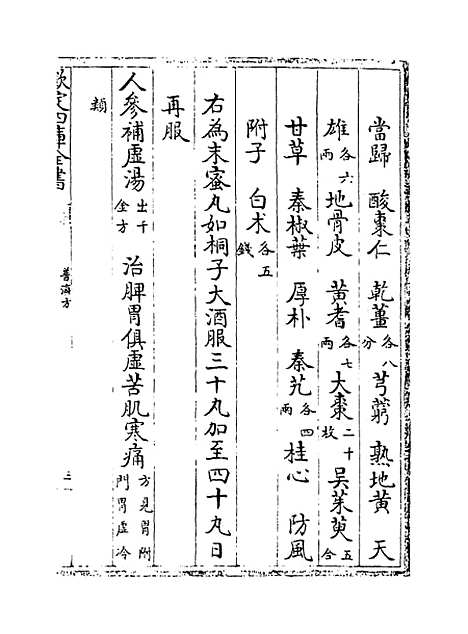 當歸 酸棗仁 乾薑各八分 芎藭 熟地黄 天
雄各六兩 地骨皮 黄耆各七兩 大棗二十枚 吳茱萸五合
甘草 秦椒葉 厚朴 秦艽各四兩 桂心 防風
附子 白术各五錢
右為末蜜丸如桐子大酒服三十丸加至四十丸日
再服
人參補虛湯出千金方 治脾胃俱虛苦肌寒痛方見胃附門胃虛冷
類
欽定四庫全書
普濟方